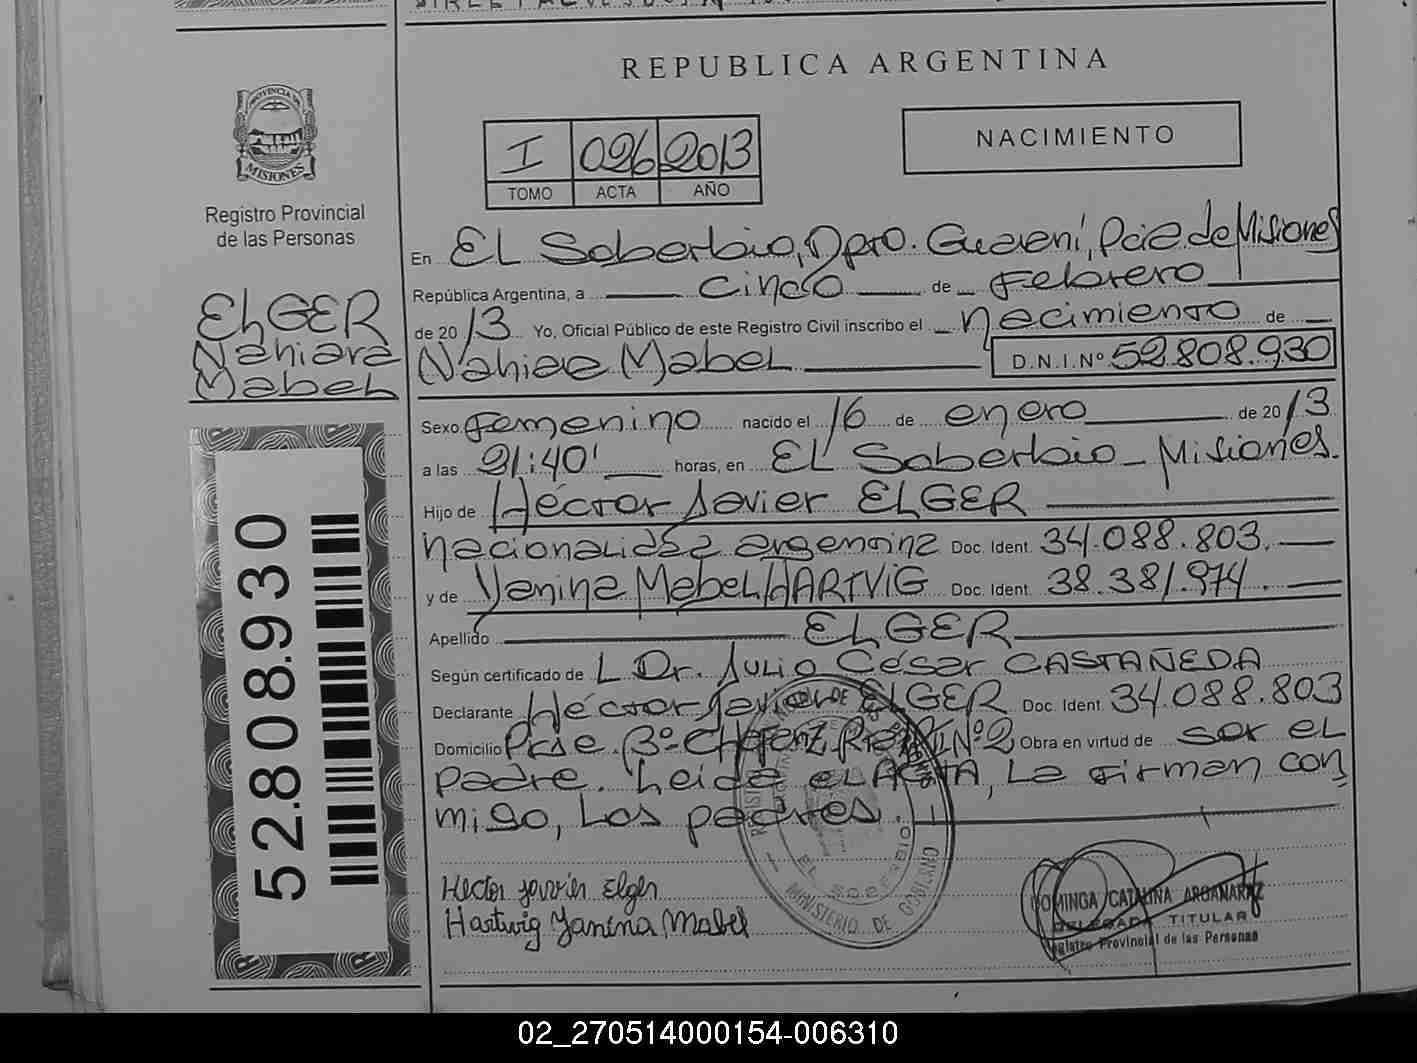 REPUBLICA ARGENTINA
PROVINCIA DE
MISIONES
Registro Provincial
de las Personas
I 026 2013
TOMO ACTA AÑO
NACIMIENTO
ELGER
Nahiara
Mabel
En El Soberbio, Dpto. Guaraní, Pcia de Misiones
República Argentina, a cinco de Febrero
de 2013 Yo, Oficial Público de este Registro Civil inscribo el nacimiento de
Mabel D.N.I.Nº 52.808.930
Sexo Femenino nacido el 16 de enero de 2013
a las 21:40' horas, en El Soberbio - Misiones.
Hijo de Héctor Javier ELGER
nacionalidad argentina Doc. Ident. 34.088.803.
y de Yanina Mabel HARTVIG Doc. Ident. 38.381.974.
Apellido ELGER
Según certificado de L Dr. Julio César CASTAÑEDA
Declarante Héctor Javier ELGER Doc. Ident. 34.088.803
Domicilio Nº2 Obra en virtud de ser el
padre. Leida el ACTA, La firman con
migo, Los padres.
52.808.930
Hector javier Elger
Hartwig Janina Mabel
EL SOBERBIO
MINISTERIO DE GOBIERNO
DOMINGA CATALINA ARGAÑARAZ
DELEGADA TITULAR
Registro Provincial de las Personas
02_270514000154-006310